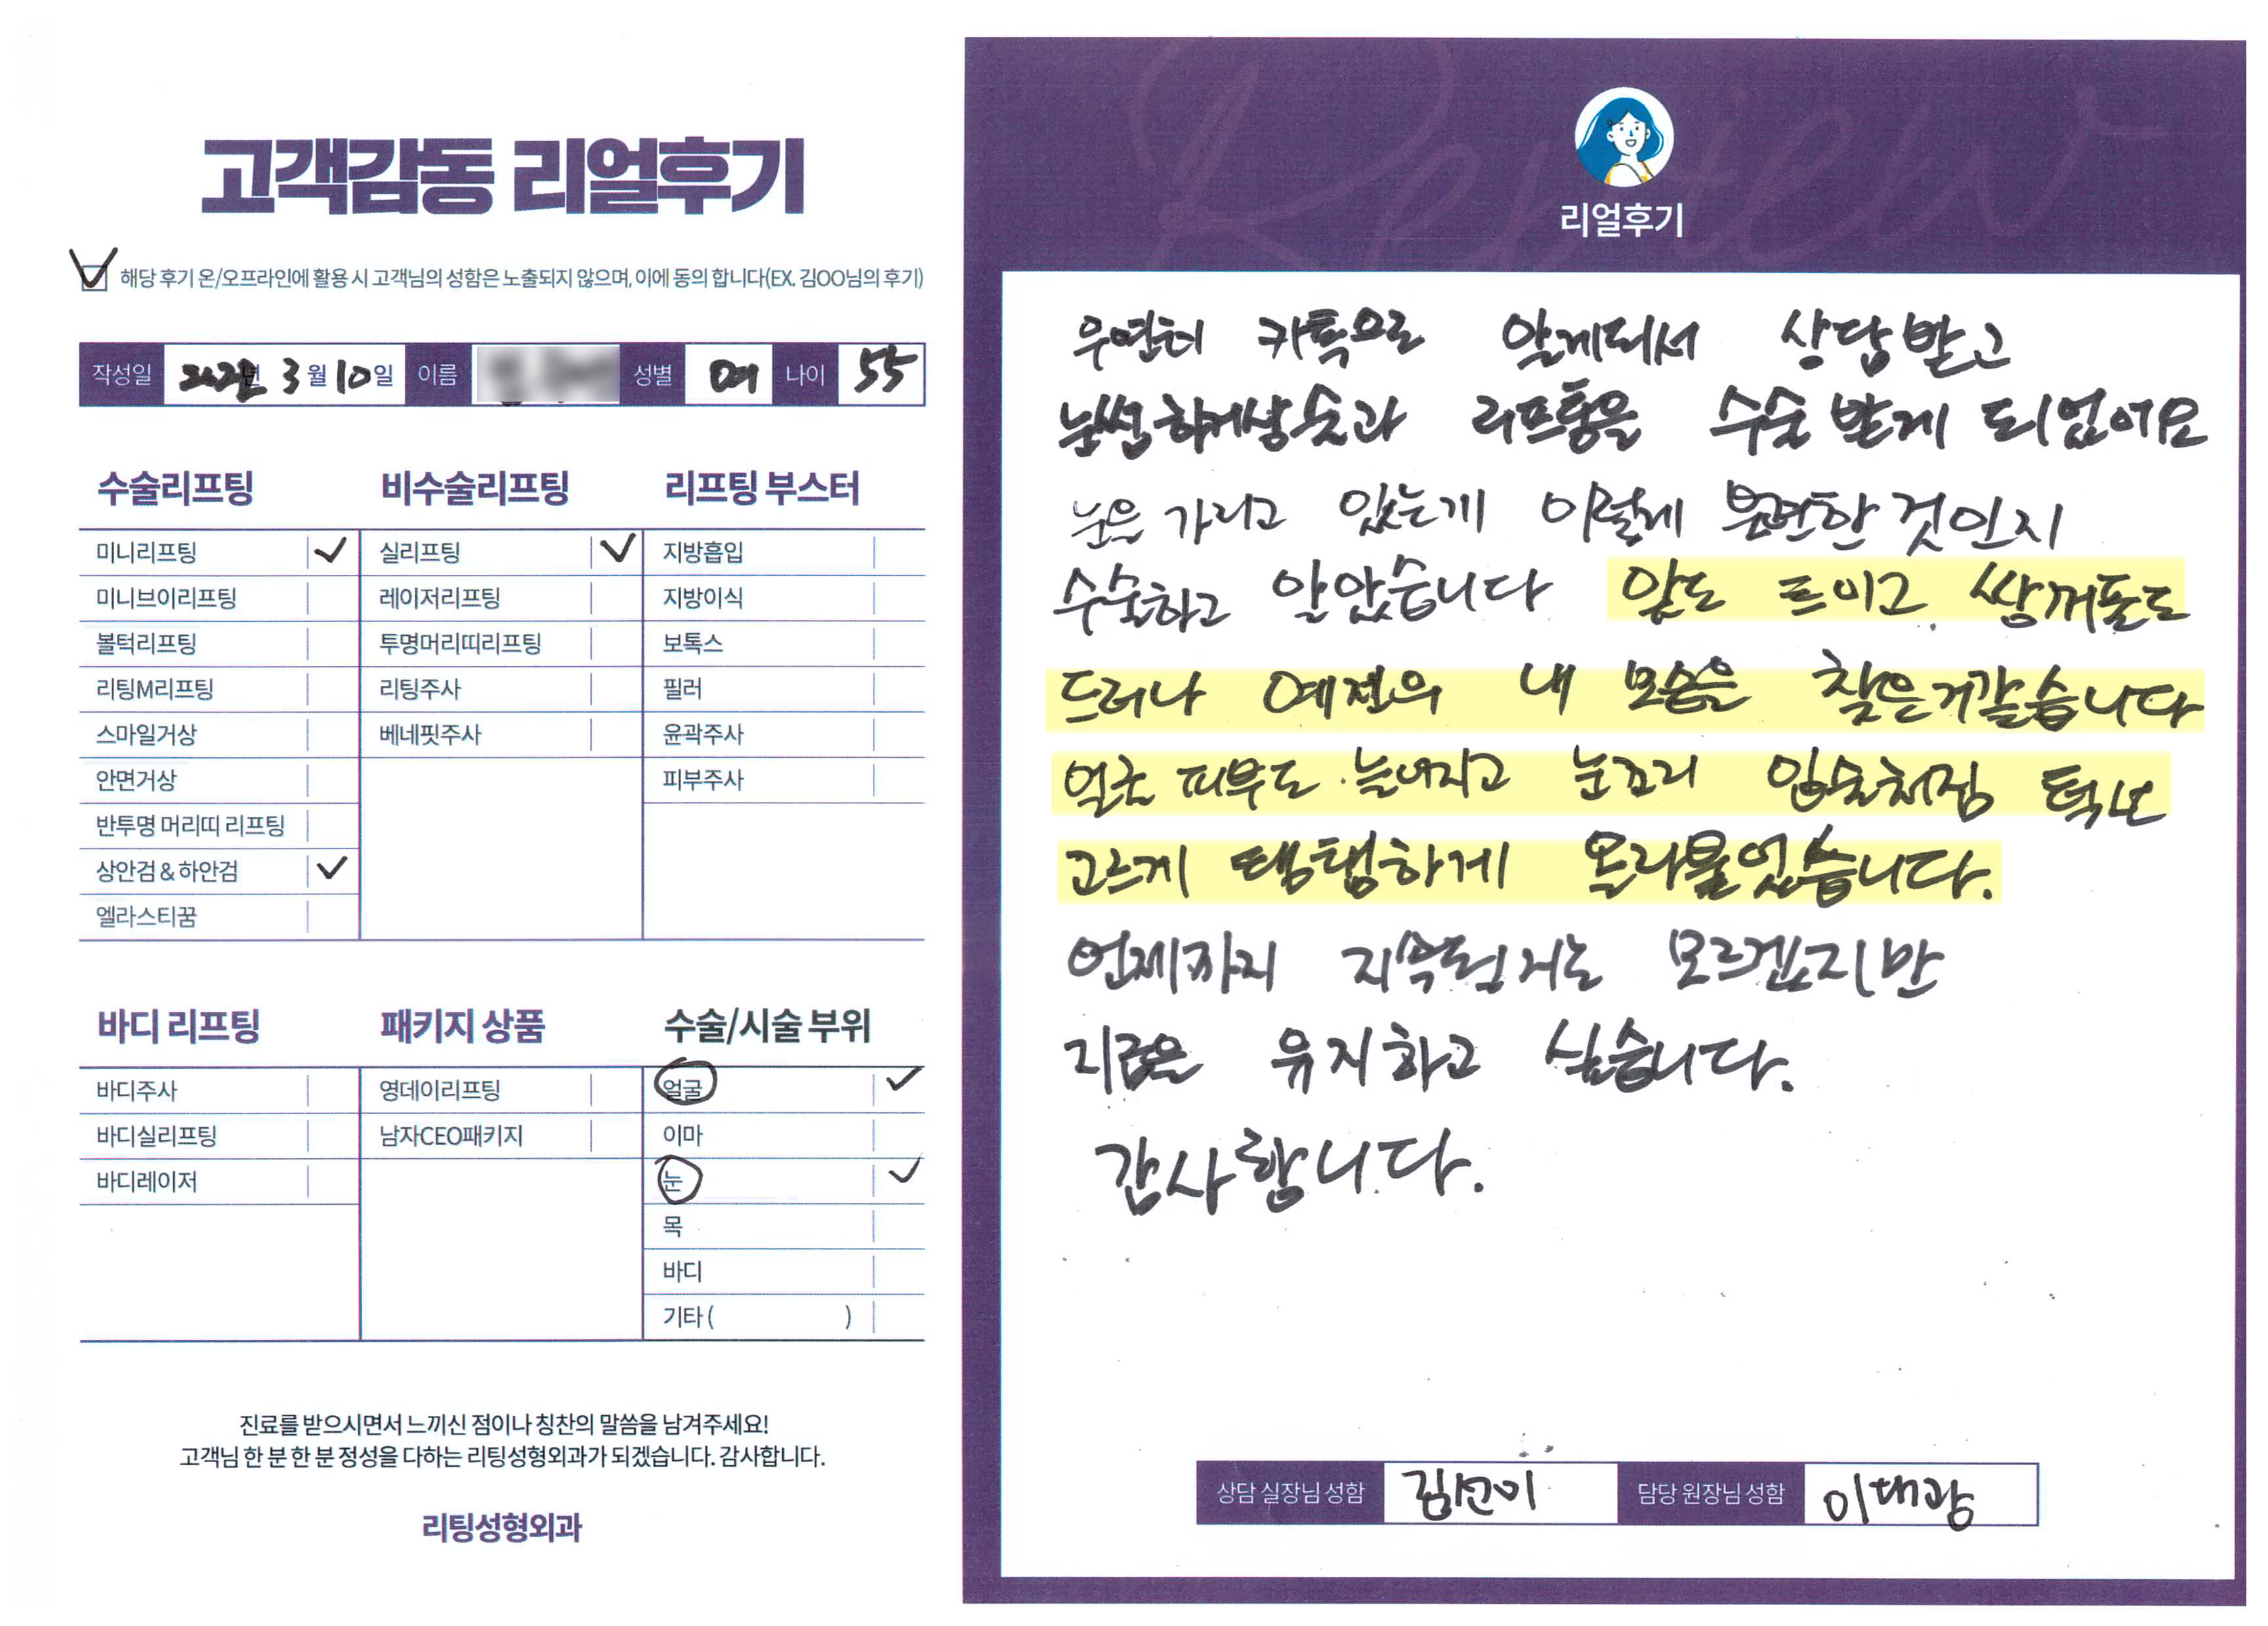 고객감동 리얼후기
해당 후기 온/오프라인에 활용 시 고객님의 성함은 노출되지 않으며, 이에 동의 합니다(EX. 김OO님의 후기)
작성일 3월 10일 이름 성별 여 나이 55
수술리프팅
미니리프팅
미니브이리프팅
볼턱리프팅
리팅M리프팅
스마일거상
안면거상
반투명 머리띠 리프팅
상안검 & 하안검
엘라스티꿈
비수술리프팅
실리프팅
레이저리프팅
투명머리띠리프팅
리팅주사
베네핏주사
리프팅 부스터
지방흡입
지방이식
보톡스
필러
윤곽주사
피부주사
바디 리프팅
바디주사
바디실리프팅
바디레이저
패키지 상품
영데이리프팅
남자CEO패키지
수술/시술 부위
얼굴
이마
눈
목
바디
기타 ( )
진료를 받으시면서 느끼신 점이나 칭찬의 말씀을 남겨주세요!
고객님 한 분 한 분 정성을 다하는 리팅성형외과가 되겠습니다. 감사합니다.
리팅성형외과
Review
리얼후기
우연히 카톡으로 알게되서 상담받고
눈썹하거상술과 리프팅을 수술 받게 되었어요
눈을 가리고 있는게 이렇게 불편한 것인지
수술하고 알았습니다 앞도 트이고 쌍꺼풀도
드러나 예전의 내 모습을 찾은거같습니다
얼굴 피부도 늘어지고 눈꼬리 입술처짐 턱선
고르게 탱탱하게 올라붙었습니다.
언제까지 지속될지는 모르겠지만
지금은 유지하고 싶습니다.
감사합니다.
상담 실장님 성함 김선미 담당 원장님 성함 이대광